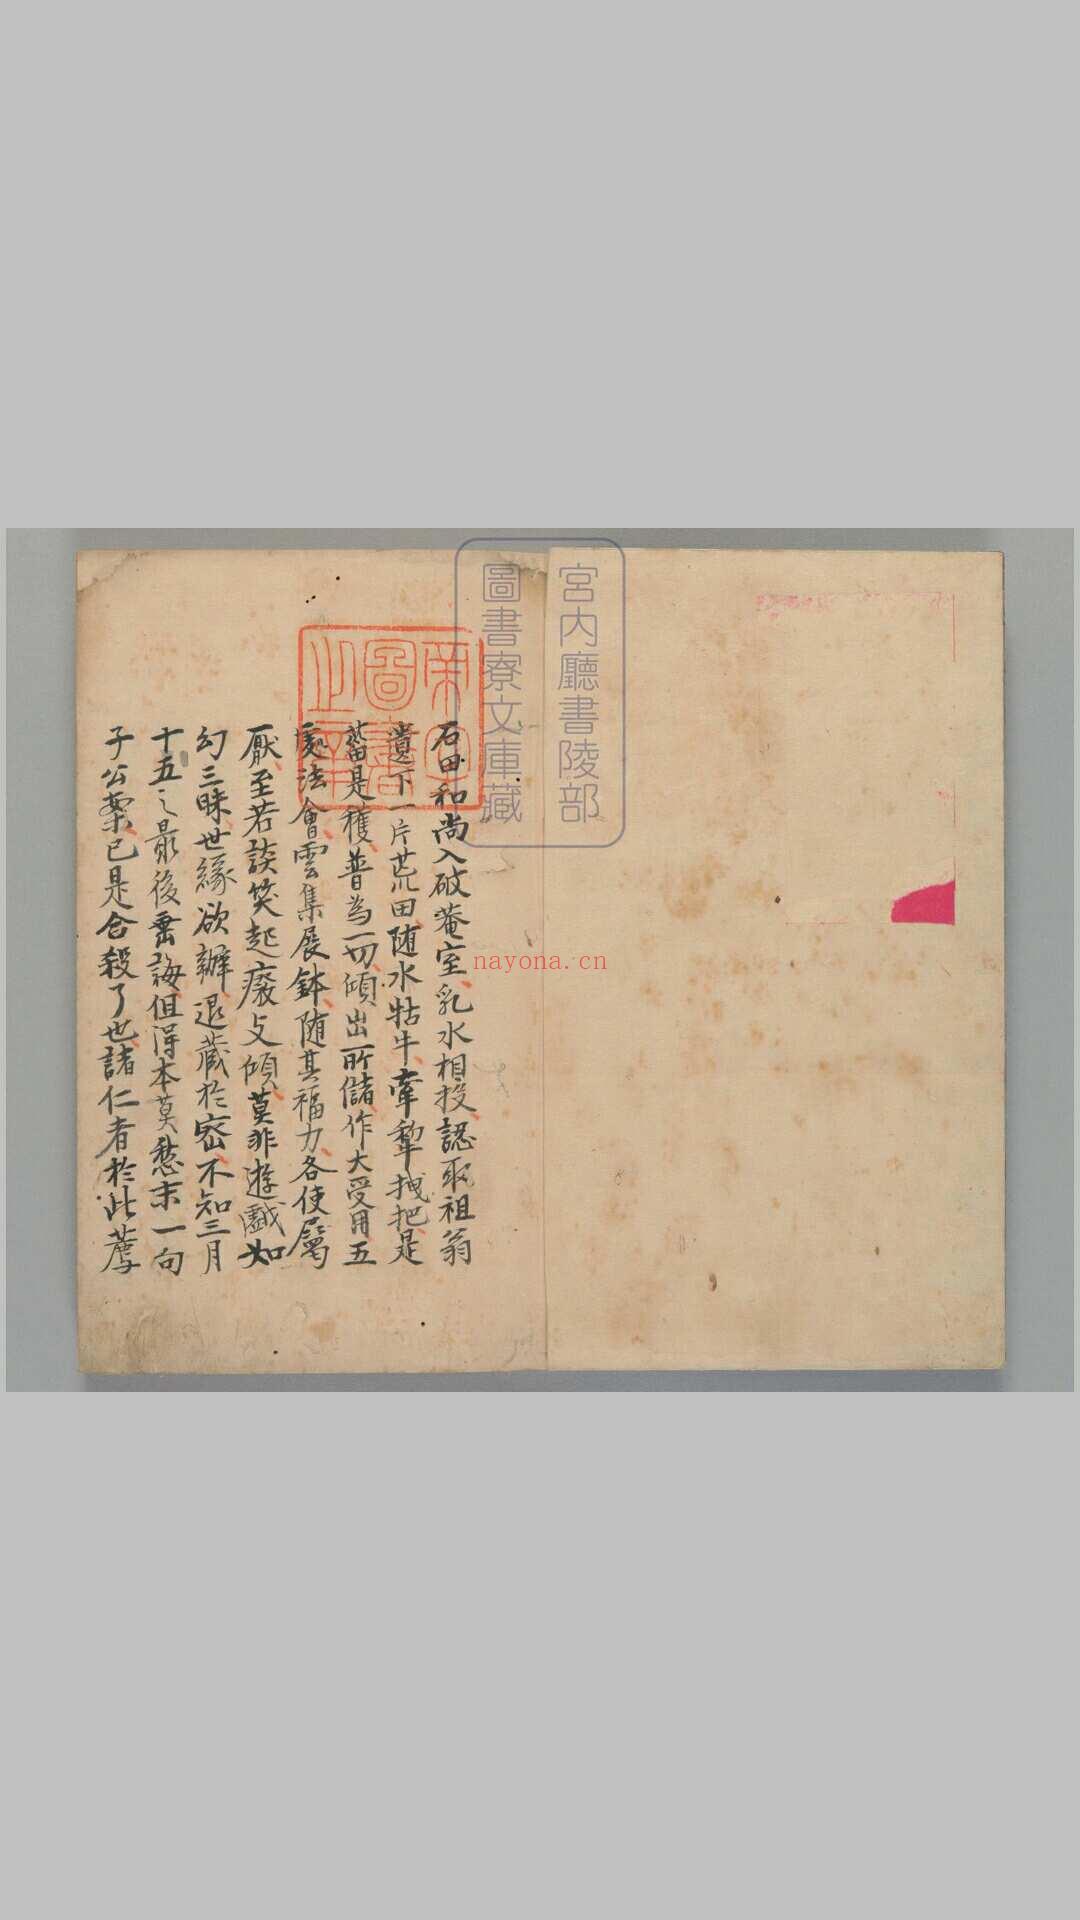 宮内廳書陵部
圖書寮文庫藏
帝室
圖書
之章
石田和尚入破菴室乳水相投認取祖翁
遺下一片荒田随水牯牛牽犂拽把是
菑是穫普為一切傾出所儲作大受用五
處法會雲集展鉢随其福力各使屬
厭至若談笑起癈攴傾莫非遊戲如
幻三昧世緣欲辦退藏於密不知三月
十五之最後垂誨但得本莫愁末一句
子公案已是合殺了也諸仁者於此薦
nayona.cn